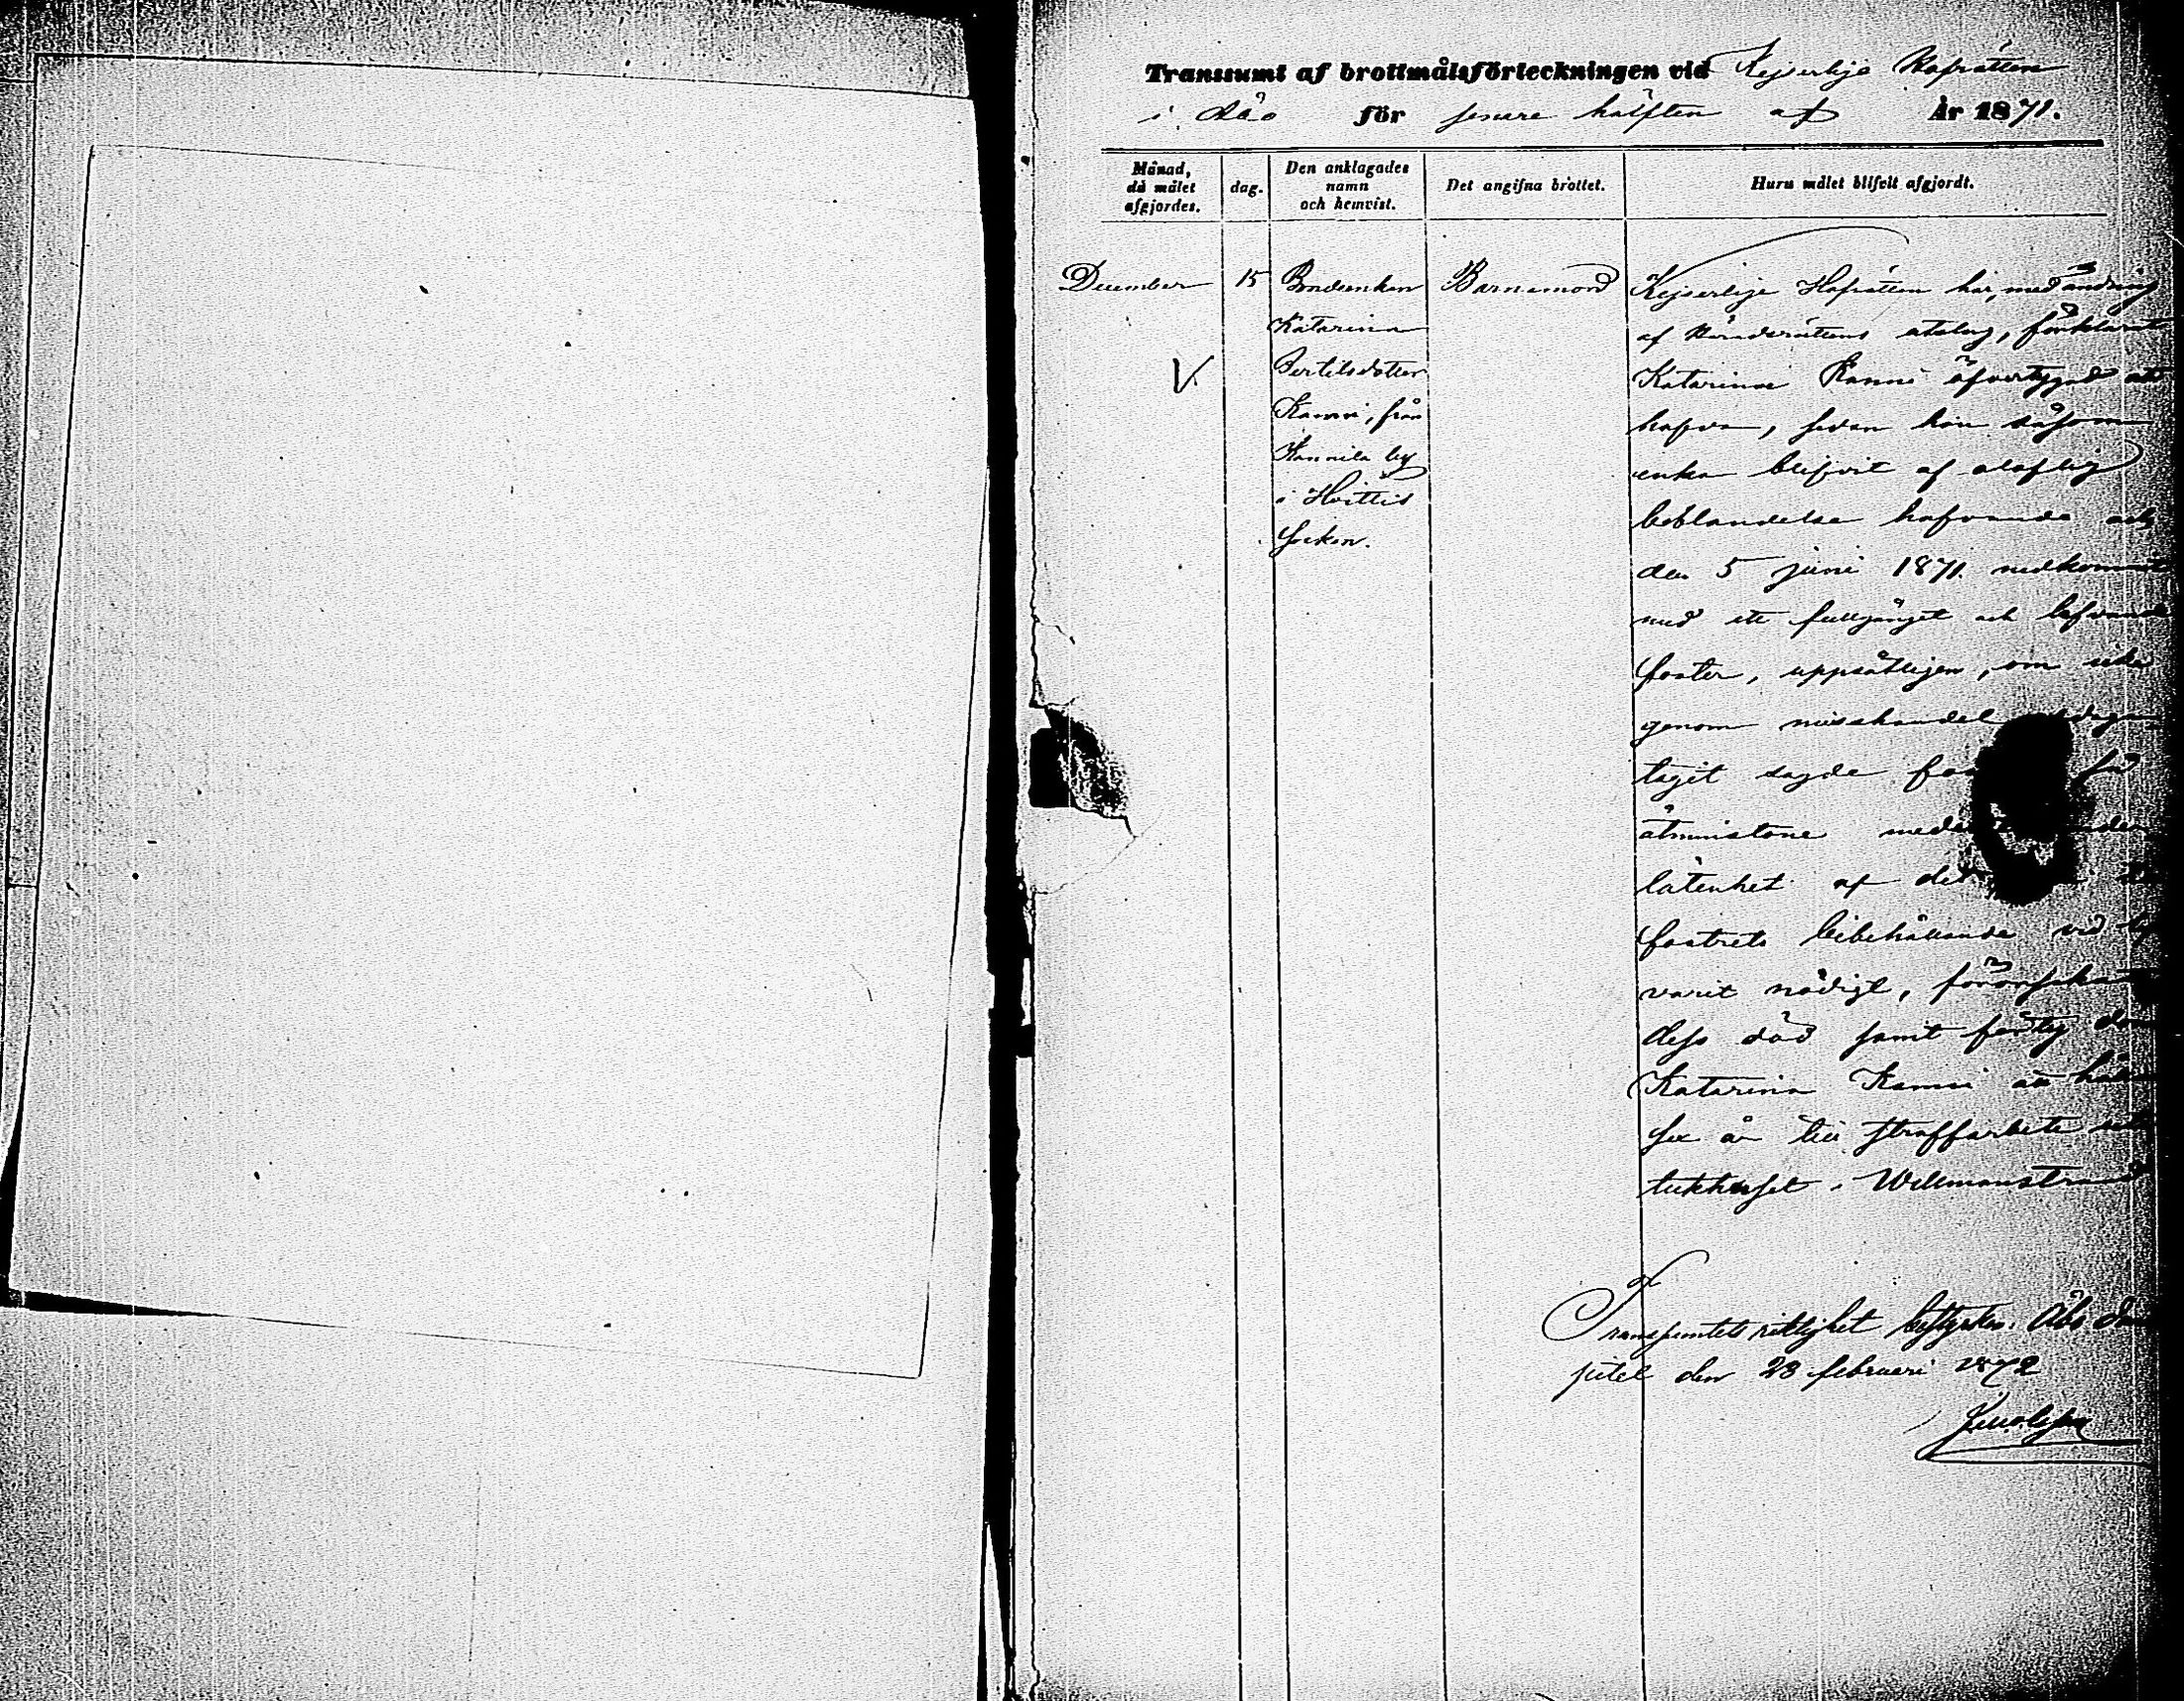 Transsumt af brottmålsförteckningen vid Kejserlige Hofrätten
i Åbo för senare hälften af År 1871.
Månad, då målet afgjordes.
dag.
Den anklagades namn och hemvist.
Det angifna brottet.
Huru målet blifvit afgjordt.
December
15
Bondeenkan
Katarina
Bertilsdotter
Kanni, från
Kannila by
i Hvittis
Socken.
Barnamord
Kejserlige Hofrätten har, med ändring
af Häradsrättens utslag, förklarat
Katarina Kanni öfvertygad att
hafva, sedan hon såsom
enka blifvit af olaflig
beblandelse hafvande och
den 5 juni 1871 nedkommit
med ett fullgånget och
foster, uppsåtligen, om icke
genom misshandel
tagit sagde
åtminstone
låtenhet af det
fostrets bibehållande vid
varit nödigt, förorsakat
dess död samt
Katarina Kanni att
sex år till straffarbete
tukthuset i Willmanstrand
Transsumtets riktighet bestyrker. Åbo
pitel den 23 februari 1872